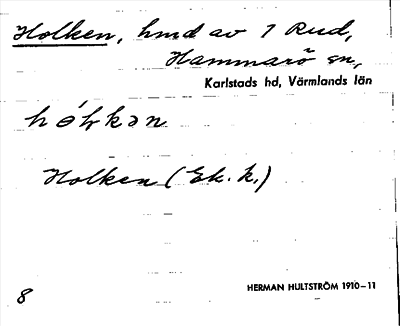 Holken, hmd av 1 Rud,
Hammarö sn,
Karlstads hd, Värmlands län
Holken (Ek. k.)
HERMAN HULTSTRÖM 1910-11
8